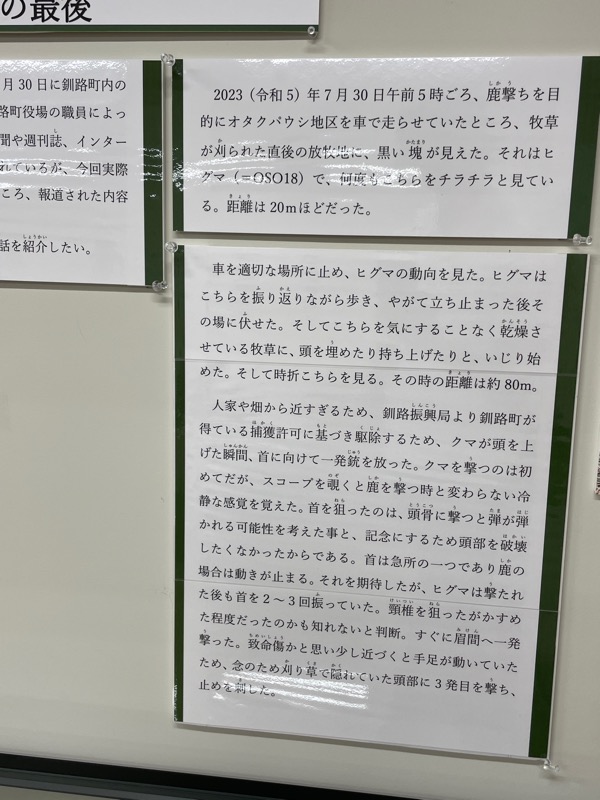 の最後
月30日に釧路町内の
路町役場の職員によっ
聞や週刊誌、インター
れているが、今回実際
ころ、報道された内容
話を紹介したい。
2023(令和5)年7月30日午前5時ごろ、鹿撃ちを目
的にオタクパウシ地区を車で走らせていたところ、牧草
が刈られた直後の放牧地に、黒い塊が見えた。それはヒ
グマ(=OSO18)で、何度もこちらをチラチラと見てい
る。距離は20mほどだった。
車を適切な場所に止め、ヒグマの動向を見た。ヒグマは
こちらを振り返りながら歩き、やがて立ち止まった後そ
の場に伏せた。そしてこちらを気にすることなく乾燥さ
せている牧草に、頭を埋めたり持ち上げたりと、いじり始
めた。そして時折こちらを見る。その時の距離は約80m。
人家や畑から近すぎるため、釧路振興局より釧路町が
得ている捕獲許可に基づき駆除するため、クマが頭を上
げた瞬間、首に向けて一発銃を放った。クマを撃つのは初
めてだが、スコープを覗くと鹿を撃つ時と変わらない冷
静な感覚を覚えた。首を狙ったのは、頭骨に撃つと弾が弾
かれる可能性を考えた事と、記念にするため頭部を破壊
したくなかったからである。首は急所の一つであり鹿の
場合は動きが止まる。それを期待したが、ヒグマは撃たれ
た後も首を2～3回振っていた。頸椎を狙ったがかすめ
た程度だったのかも知れないと判断。すぐに眉間へ一発
撃った。致命傷かと思い少し近づくと手足が動いていた
ため、念のため刈り草で隠れていた頭部に3発目を撃ち、
止めを刺した。